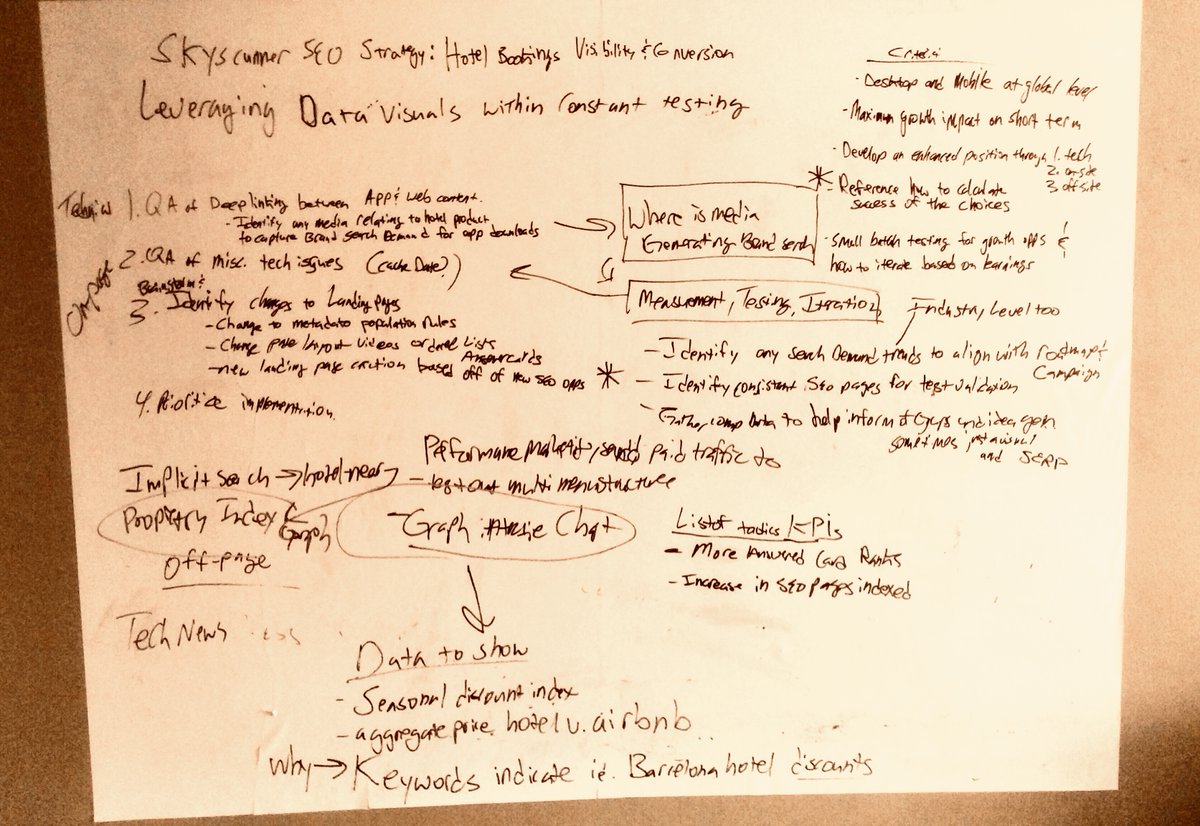 Skyscanner SEO Strategy: Hotel Bookings Visibility & Conversion
Leveraging Data Visuals within constant testing
Criteria
- Desktop and Mobile at global level
- Maximum growth impact on short term
- Develop an enhanced position through 1. tech
2. onsite
3. offsite
* - Reference how to calculate
success of the choices
- Small batch testing for growth opps &
how to iterate based on learnings
Technical 1. QA of Deeplinking between App & web content.
- Identify any media relating to hotel product
to capture Brand search Demand for app downloads
Where is media
Generating Brand serch
2. QA of misc. tech issues (cache Date?)
On page
Brainstorm &
3. Identify changes to Landing pages
- Change to metadata population rules
- Change page layout videos ordered Lists
Answercards
- new landing page creation based off of new SEO opps
4. Prioritize implementation
Measurement, Testing, Iteration
Industry Level too
- Identify any serch Demand trends to align with roadmap &
Campaign
* - Identify consistent SEO pages for test validation
- Gather comp Data to help inform and idea gen
sometimes just a visual
and SERP
Implicit search → hotel near
Performance marketing, paid traffic to
- test out multi menu structure
Property Index & Graph
- Graph Chat
off-page
List of tactics KPIs
- More Answered Card Ranks
- Increase in SEO pages indexed
Tech News
Data to show
- Seasonal discount index
- aggregate price hotel v. airbnb
Why → Keywords indicate ie. Barcelona hotel discounts